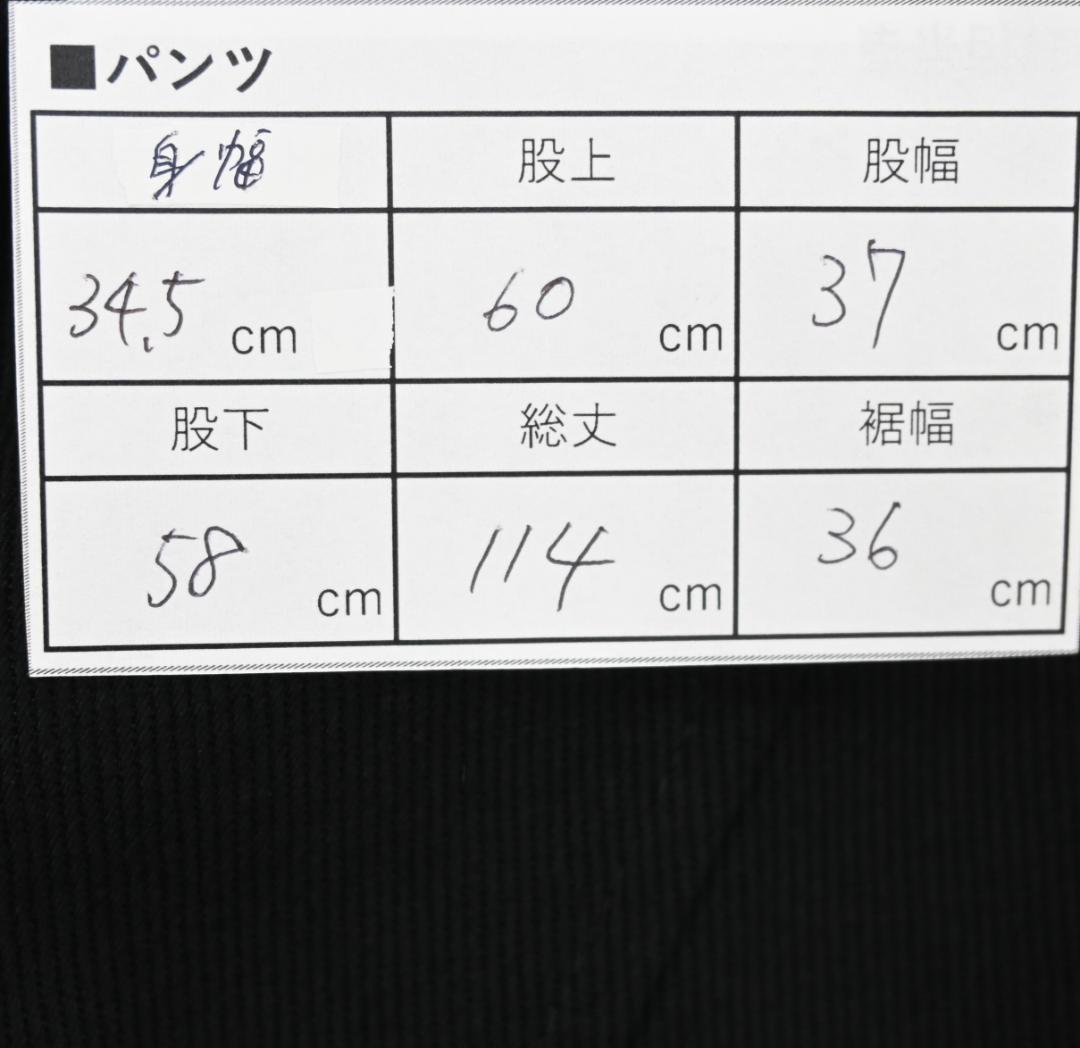 ■パンツ
身幅 股上 股幅
34.5 cm 60 cm 37 cm
股下 総丈 裾幅
58 cm 114 cm 36 cm